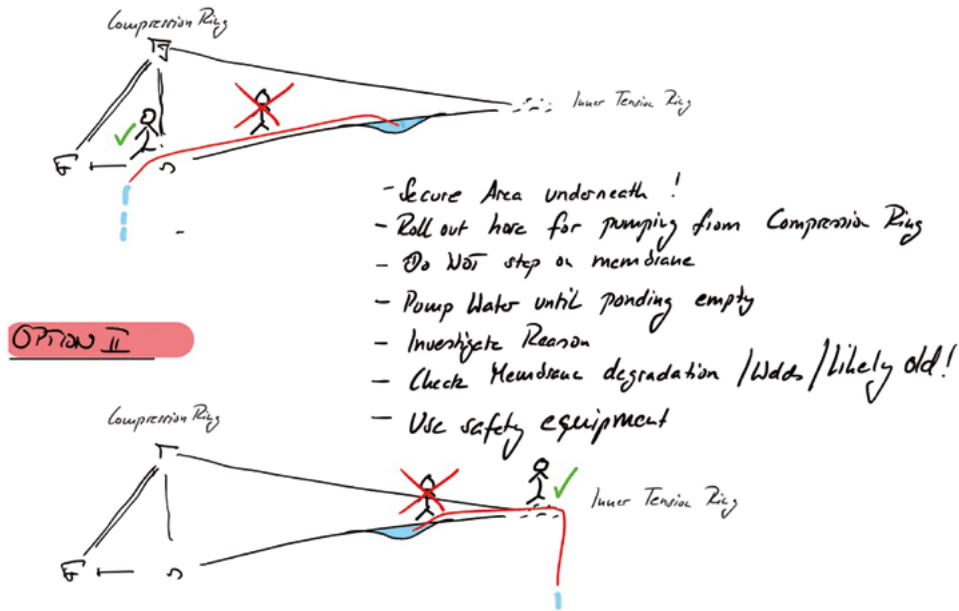 Compression Ring
Inner Tension Ring
- Secure Area underneath !
- Roll out hose for pumping from Compression Ring
- Do NOT step on membrane
- Pump Water until ponding empty
- Investigate Reason
- Check Membrane degradation / Welds / Likely old!
- Use safety equipment
OPTION II
Compression Ring
Inner Tension Ring